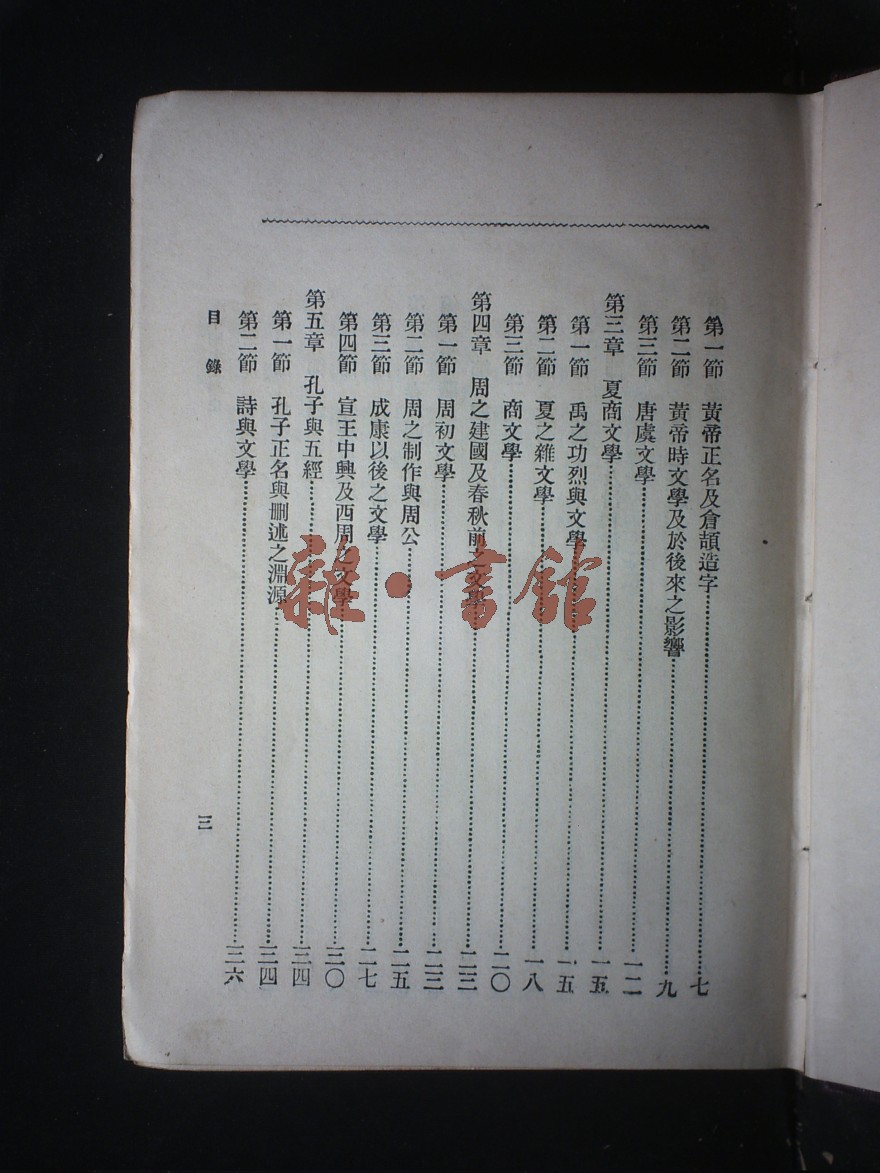 第一節　黃帝正名及倉頡造字……七
第二節　黃帝時文學及於後來之影響……九
第三節　唐虞文學……一二
第三章　夏商文學……一五
第一節　禹之功烈與文學……一五
第二節　夏之雜文學……一八
第三節　商文學……二〇
第四章　周之建國及春秋前之文學……二三
第一節　周初文學……二三
第二節　周之制作與周公……二五
第三節　成康以後之文學……二七
第四節　宣王中興及西周之文學……三〇
第五章　孔子與五經……三四
第一節　孔子正名與刪述之淵源……三四
第二節　詩與文學……三六
目錄
三
雜·書館